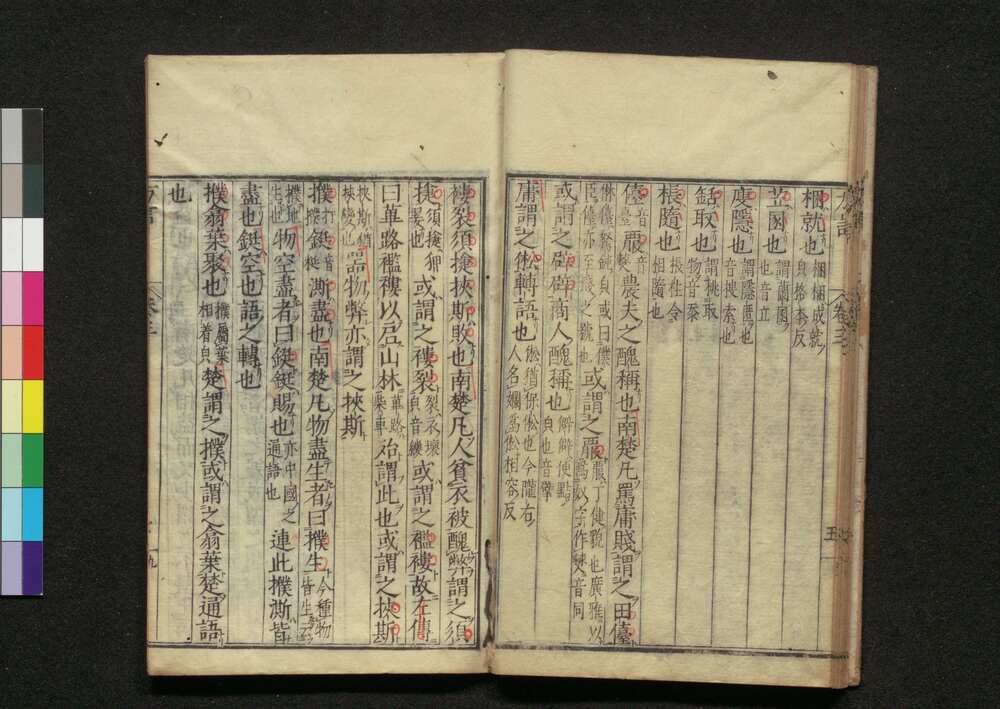 梱就也梱梱成就皃恪本反
苙圂也謂蘭圂也音立
廋隱也謂隱匿也音搜索也
銛取也謂挑取物音忝
棖隨也棖柱令相隨也
儓音臺䈚音僰農夫之醜稱也南楚凡罵庸賤謂之田儓
休儓駑鈍皃或曰僕臣儓亦至賤之號也或謂之䈚䈚丁健皃也廣雅以爲奴字作僰音同
或謂之辟辟商人醜稱也僻僻便黠皃也音擘
庸謂之倯轉語也倯猶保倯也今隴右人名孏爲倯相容反
褸裂須捷挾斯敗也南楚凡人貧衣被醜弊謂之須
捷須捷狎翣也或謂之褸裂裂衣壞皃音縷或謂之襤褸故左傳
曰篳路襤褸以启山林篳路柴車殆謂此也或謂之挾斯
挾斯猶挾變也器物弊亦謂之挾斯
撲打撲鋌音梃澌盡也南楚凡物盡生者曰撲生今種物皆生云
撲地生也物空盡者曰鋌鋌賜也亦中國之通語也連此撲澌皆
盡也鋌空也語之轉也
撲翕葉聚也撲屬葉相着皃楚謂之撲或謂之翕葉楚通語
也
方言
卷三
五
九